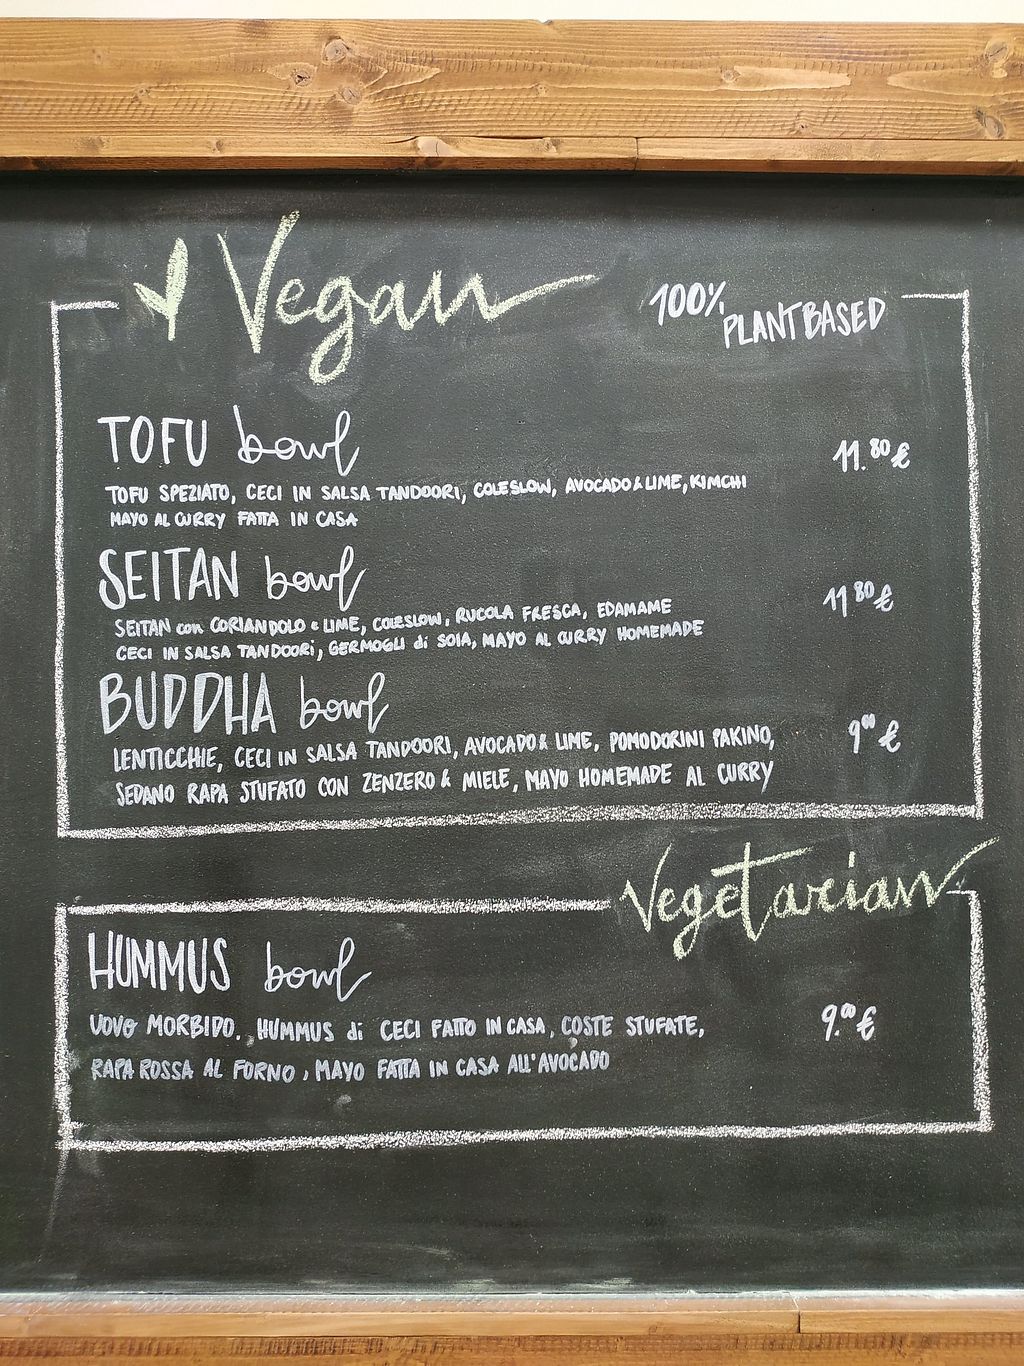 Vegan
100% PLANTBASED
TOFU bowl 11.80 €
TOFU SPEZIATO, CECI IN SALSA TANDOORI, COLESLOW, AVOCADO & LIME, KIMCHI
MAYO AL CURRY FATTA IN CASA
SEITAN bowl 11 80 €
SEITAN con CORIANDOLO e LIME, COLESLOW, RUCOLA FRESCA, EDAMAME
CECI IN SALSA TANDOORI, GERMOGLI di SOIA, MAYO AL CURRY HOMEMADE
BUDDHA bowl 9 00 €
LENTICCHIE, CECI IN SALSA TANDOORI, AVOCADO & LIME, POMODORINI PAKINO,
SEDANO RAPA STUFATO CON ZENZERO & MIELE, MAYO HOMEMADE AL CURRY
Vegetarian
HUMMUS bowl
UOVO MORBIDO, HUMMUS di CECI FATTO IN CASA, COSTE STUFATE, 9.00 €
RAPA ROSSA AL FORNO, MAYO FATTA IN CASA ALL'AVOCADO